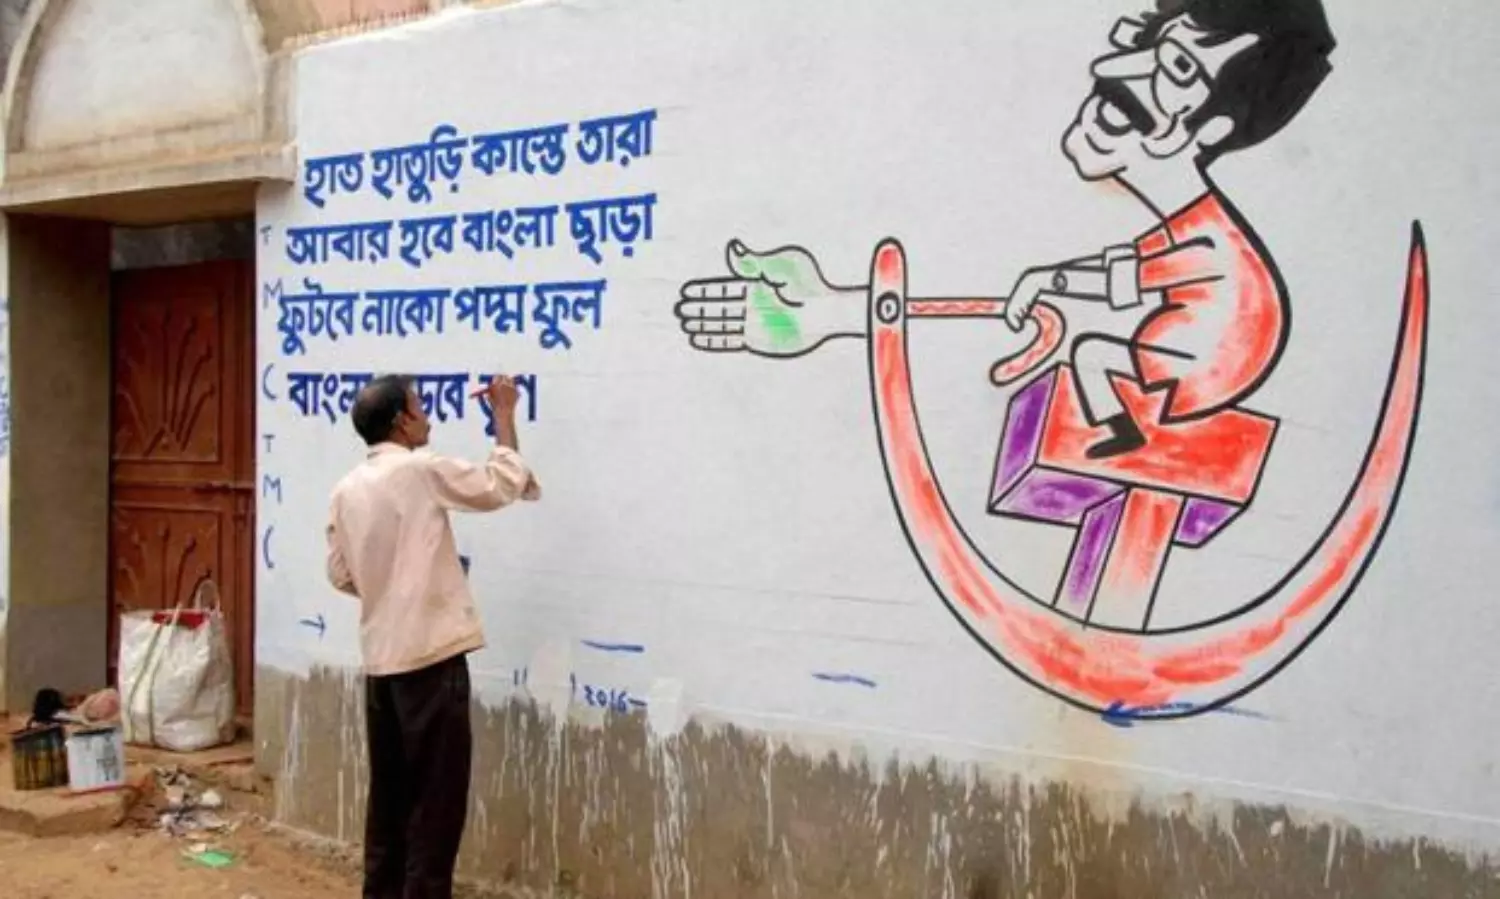 হাত হাতুড়ি কাস্তে তারা
আবার হবে বাংলা ছাড়া
ফুটবে নাকো পদ্ম ফুল
বাংলা
T
M
C
T
M
C
২০১৬